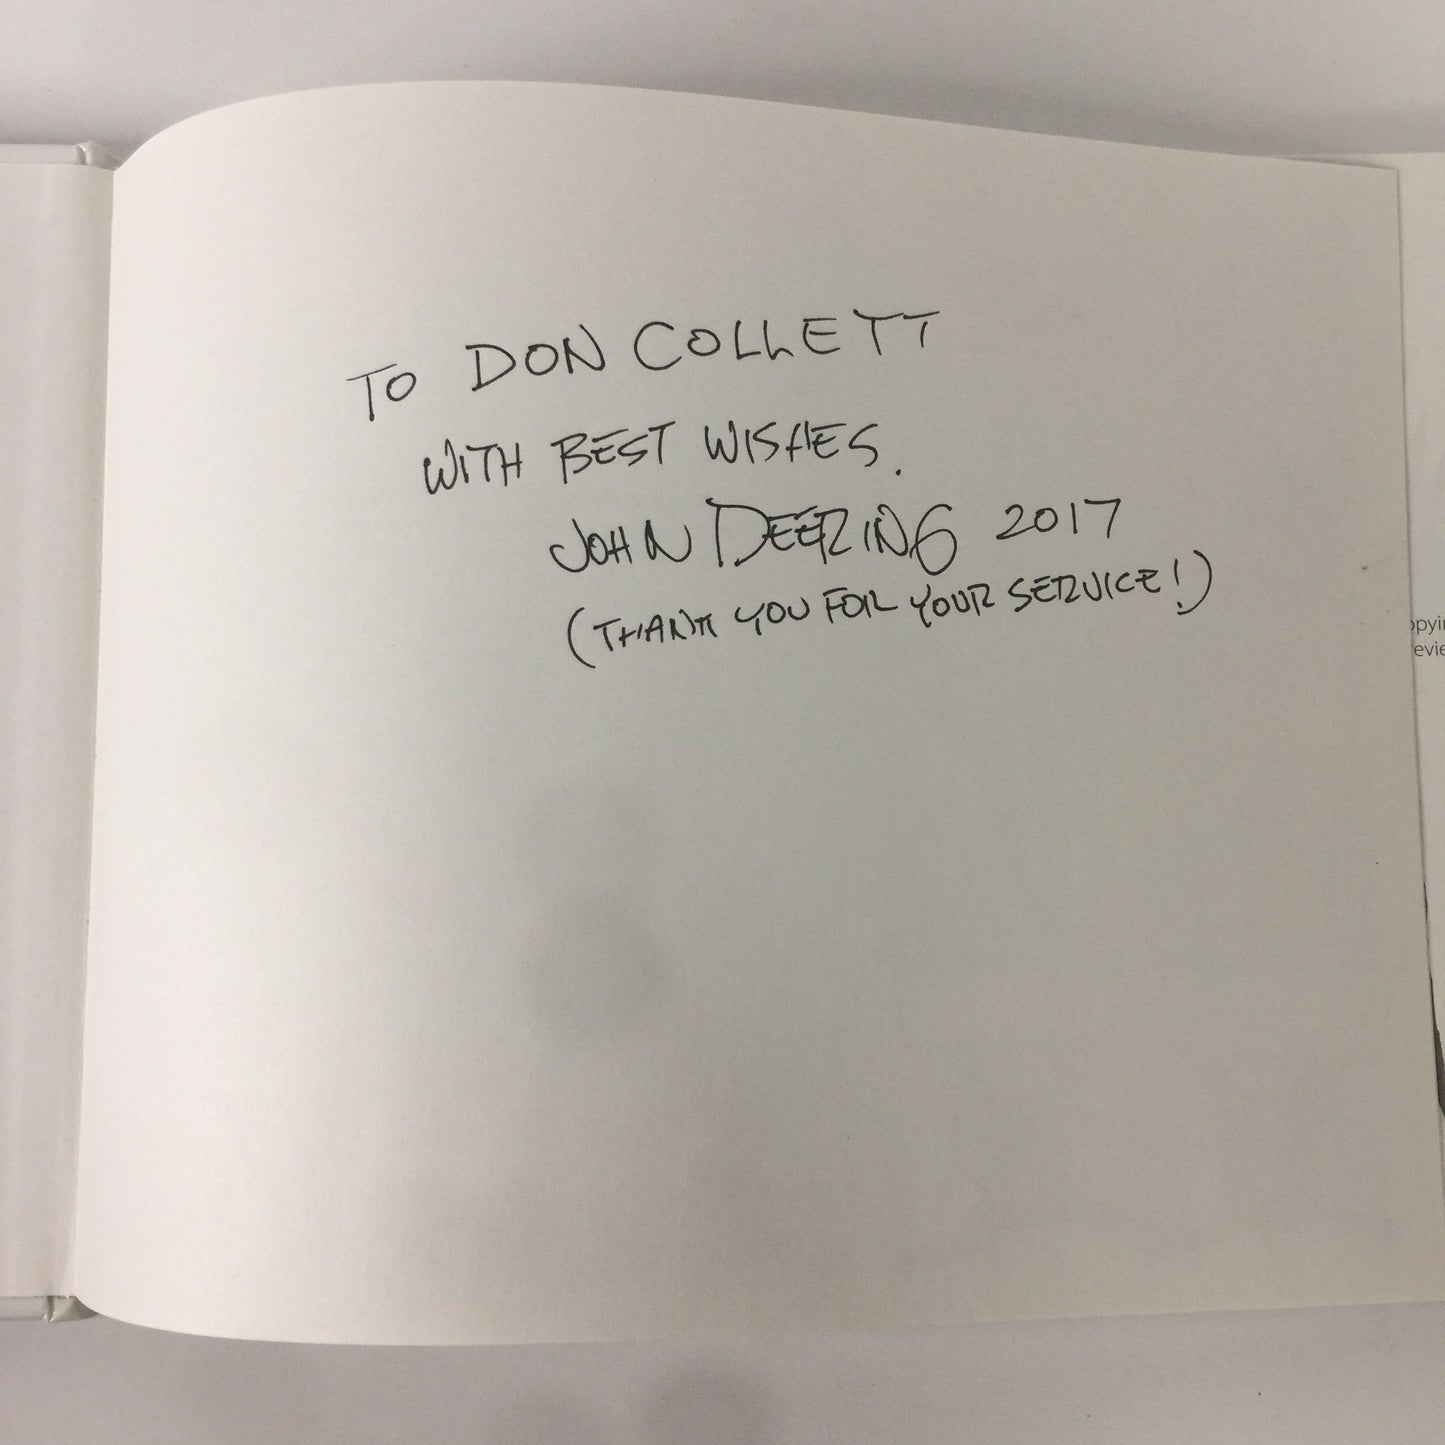 TO DON COLLETT
WITH BEST WISHES.
JOHN DEERING 2017
(THANK YOU FOR YOUR SERVICE!)